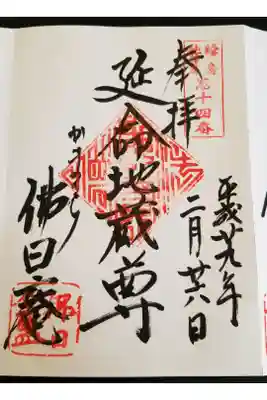 第十四番
奉拝
平成廿九年
二月廿六日
延命地蔵尊
かまくら
佛日庵